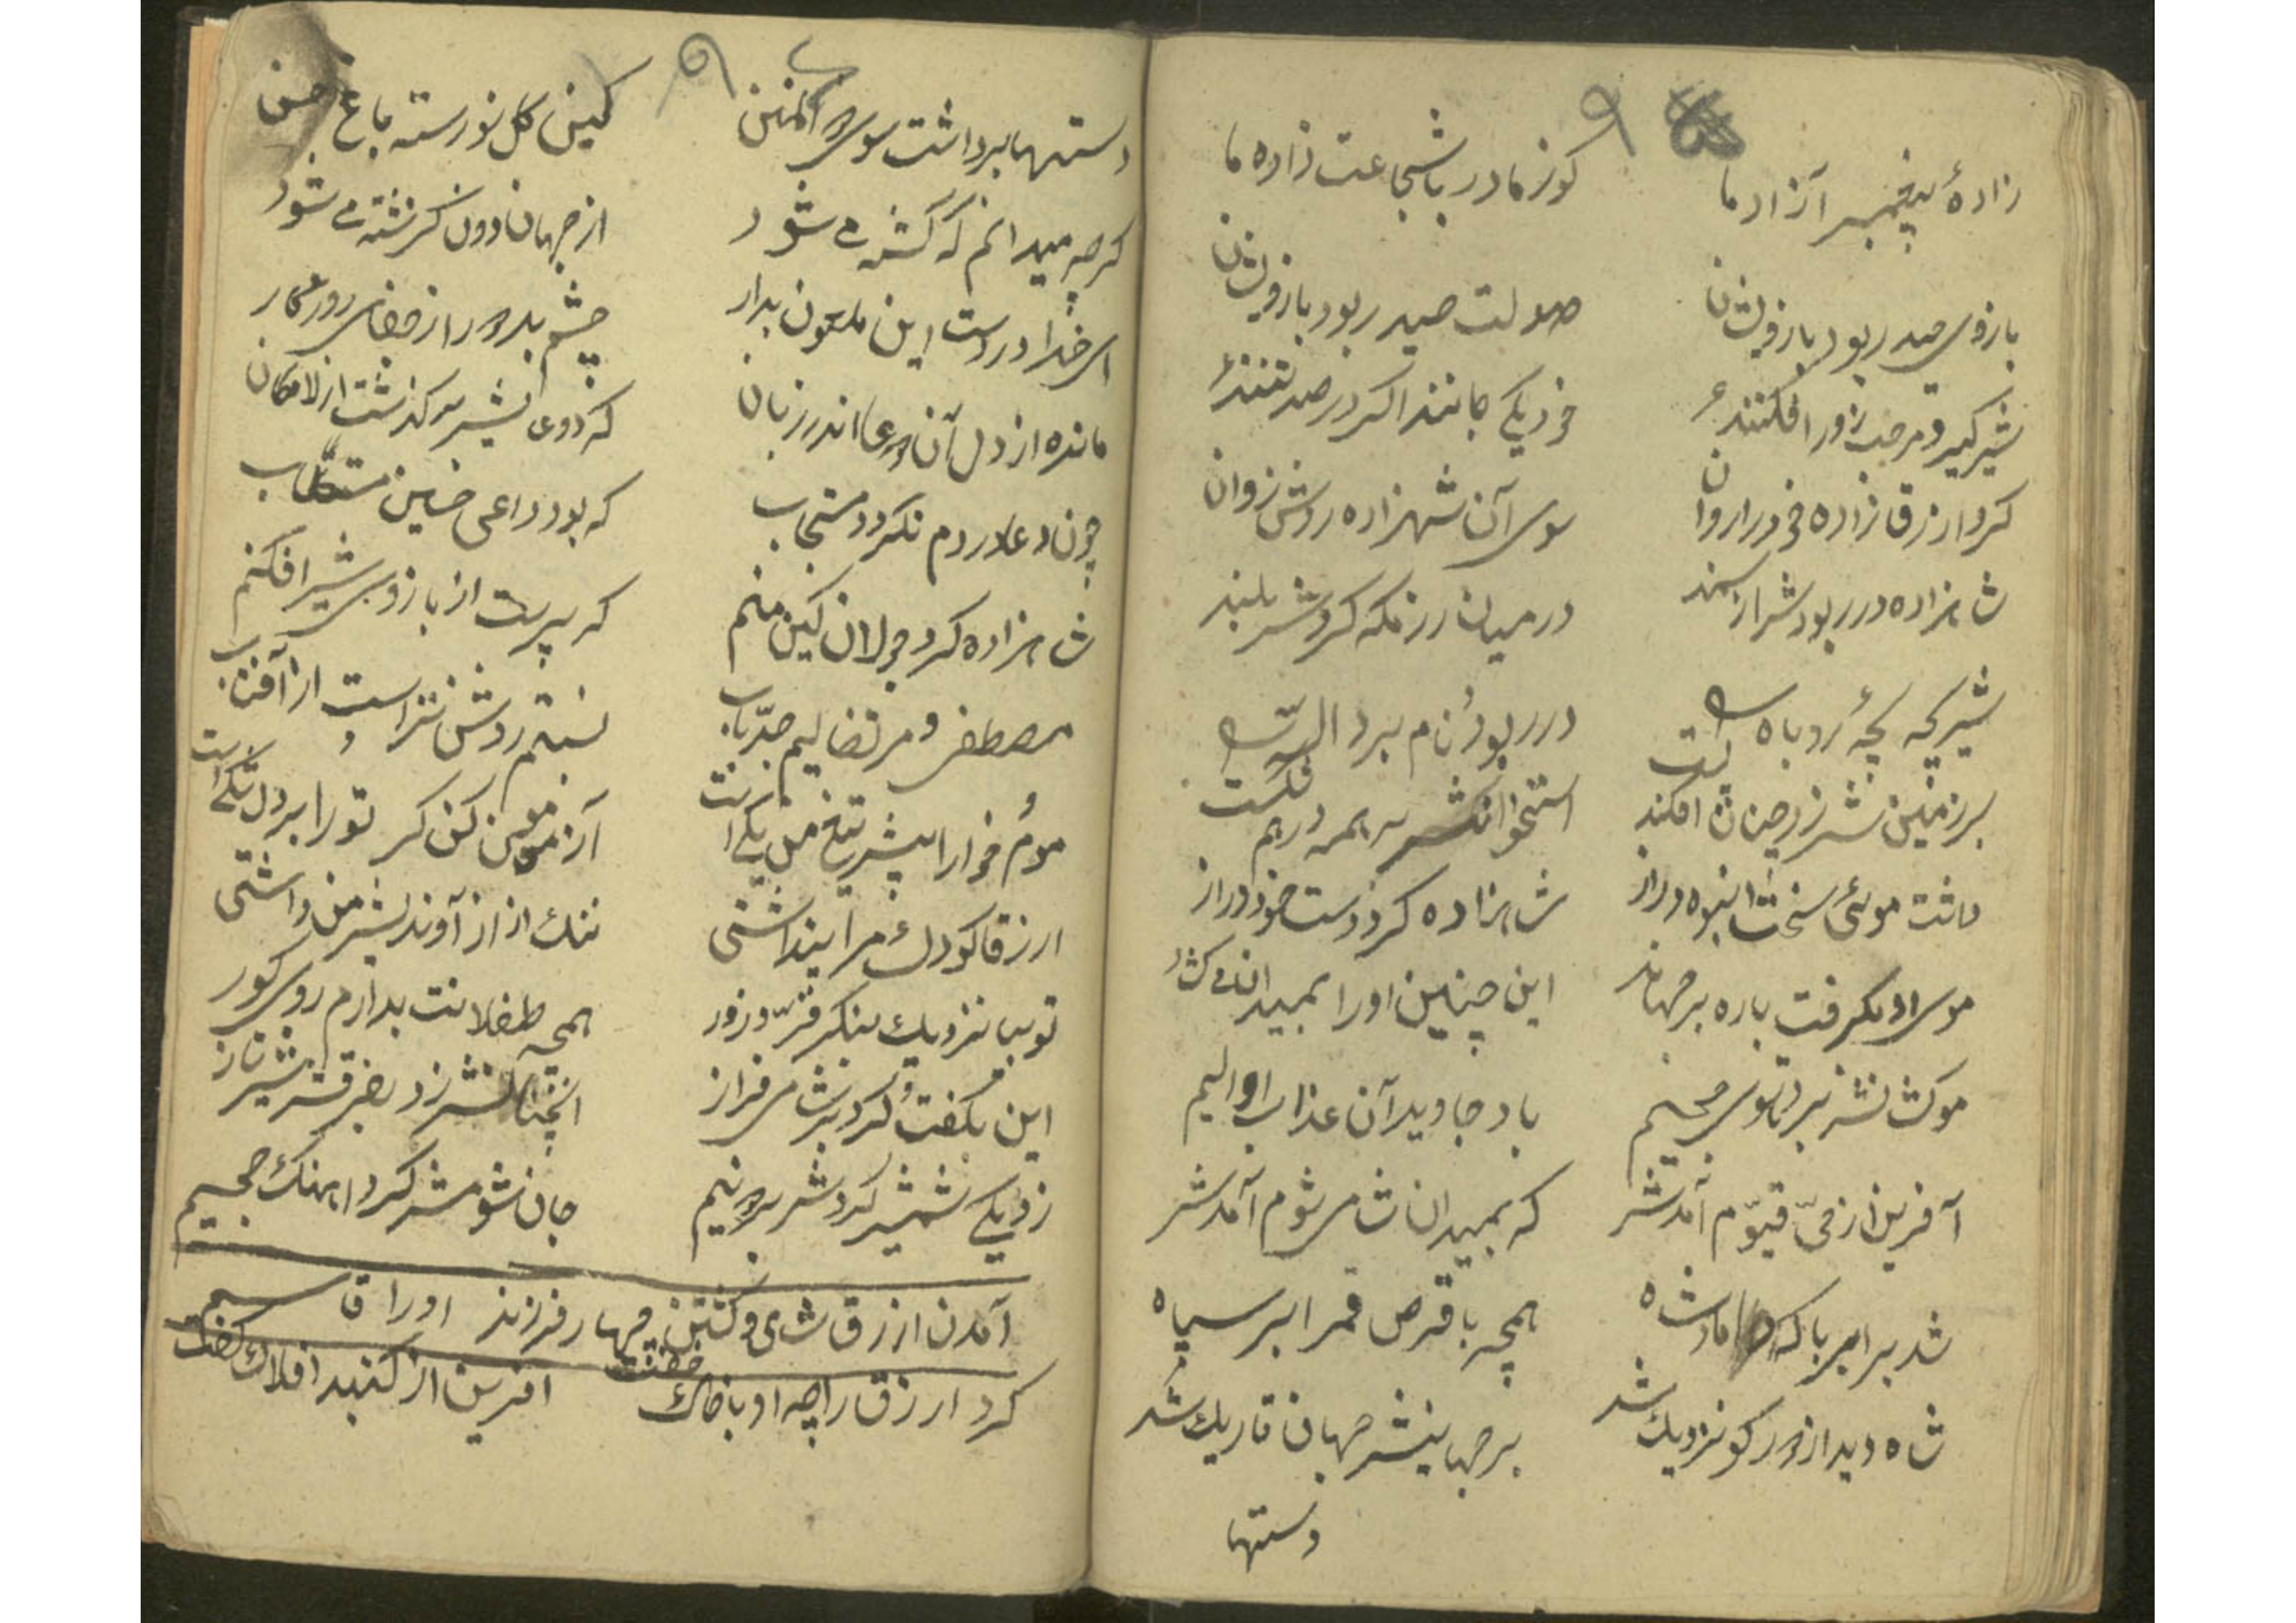 ۹
زادهٔ پیغمبر آزاد ما کوز مادر با شجاعت زاده ما
بازوی حیدر بود بازویشان صولت حیدر بود بازویشان
شیر گیر و مرحب زور افکنند خود یکی مانند اگر در صد تنند
کرد ارزق زاده خود را روان سوی آن شهزاده روشن روان
شاهزاده در ربودش از سمند در میان رزمگه کردش بلند
شیر بچه بچهٔ روباه در ربود و نام برد الله
بر زمینش زد چنان افکند پست استخوانش سر بسر درهم شکست
داشت موئی سخت انبوه و دراز شاهزاده کرد دست خود دراز
موی او بگرفت باره بر جهاند این چنین او را بمیدان
موکشانش برد تا سوی جحیم باد جاوید آن عذاب او الیم
آفرین از حیّ قیّوم آمدش که بمیدان شامی شوم آمدش
شد برابر با که داماد شاه همچه با قرص قمر ابر سیاه
شاه دید از دور کو نزدیک شد بر جهان بینش جهان تاریک شد
دستها
۹
دستها برداشت سوی ذوالمنن کین گل نورسته باغ حسن
گرچه میدانم که کشته می شود از جهان دون گذشته می شود
ای خدا در دست این ملعون مدار چشم بد دور از جفای روزگار
مانده از دل آن دعا اندر زبان که دوی پیشی گذشت از لامکان
چون دعا در دم نگردد مستجاب که بود داعی حسین مستطاب
شاهزاده کرد جولان کین منم که پرست از بازوی شیر افکنم
مصطفی و مرتضایم جدّ و باب نسبتم روشن تر است از آفتاب
مردم خوار پیش تیغ من یکی است آزمون کن گر تو را بر دل شکی است
ارزقا کودک مرا پنداشتی ننگ از آوند پیش من داشتی
تو بیا نزدیک بنگر فرّ و زور همچه طفلانت بدارم روی گور
این بگفت و کرد سر فراز آنچنانش زد بضرب تیر ناز
زد یکی شمشیر کردش بر دو نیم جان شومش کرد آهنگ جحیم
آمدن ارزق شامی و کشتن چهار فرزند او را قاسم
کرد ارزق را چه او با خاک جفت آفرین از گنبد افلاک گفت